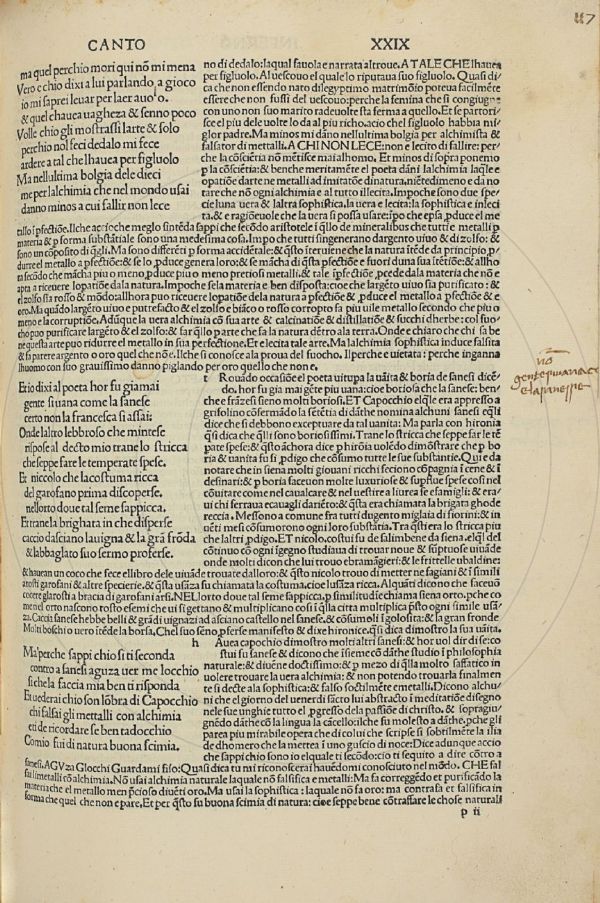 117
CANTO XXIX
ma quel perchio mori qui nõ mi mena
Vero e chio dixi a lui parlando a gioco
io mi saprei levar per laer a uolo.
& quel chauea uagheza & senno poco
Volle chio gli mostrassi larte & solo
perchio nol feci dedalo mi fece
ardere a tal che lhauea per figluolo
Ma nellultima bolgia delle dieci
me per lalchimia che nel mondo usai
danno minos a cui fallir non lece
no di dedalo: laqual fauola e narrata altroue. A TALE CHE lhauea
per figluolo. Al uescouo el quale lo riputaua suo figluolo. Quasi di
ca che non essendo nato di legyptimo matrimõio poteua facilmẽte
essere che non fussi del uescouo: perche la femina che si congiugne
con uno non suo marito rade uolte sta ferma a quello. Et se partori
sce el piu delle uolte lo da al piu richo. acio chel figluolo habbia mi
glor padre. Ma minos mi dãno nellultima bolgia per alchimista &
falsator di metalli. A CHI NON LECE: non e lecito di fallire: per
che la cõsciẽtia nõ mẽtisce mai alhomo. Et minos di sopra ponemo
p la cõsciẽtia: & benche meritamẽte el poeta dãni lalchimia laqle e
opatiõe darte ne metalli ad imitatõe dinatura. niẽtedimeno e da no
tare che nõ ogni alchimia e al tutto illecita. Impoche sono due spe
cie luna uera & laltra sophistica. la uera e lecita: la sophistica e inleci
ta. & e ragiõeuole che la uera si possa usare: ipo che epsa pduce el me
tallo i psectiõe. Ilche acio che meglo sintẽda sappi che secõdo aristotele i qllo de mineralibus che tutte metalli p
materia & p forma substãtiale sono una medesima cosa. Impo che tutti singenerano dargento uiuo & di zolfo: &
sono un cõposito di qgli. Ma sono differẽti p forma accidẽtale: & qsto interuiene che la natura itẽde da principio p
durre el metallo a psectiõe: & se lo pduce genera loro: & se mãcha di qsta psectiõe e fuori duna sua itẽtione: & allho
ra secõdo che mãcha piu o meno, pduce piu o meno pretiosi metalli: & tale ipsectiõe, pcede dala materia che nõ e
apta a riceuere lopatiõe dala natura. Impoche se la materia e ben disposta: cioe che largẽto uiuo sia purificato: &
el zolfo sia rosso & mõdo: allhora puo riceuere lopatiõe dela natura a psectiõe & pduce el metallo a psectiõe & e
oro. Ma quãdo largẽto uiuo e putrefacto & el zolfo e biãco o rosso corropto fa piu uile metallo secondo che piu o
meno e la corruptiõe. Adũque la uera alchimia cõ sua arte & calcinatiõe & distillatiõe & succhi dherbe: col fuo
cho puo purificare largẽto & el zolfo: & far qllo parte che fa la natura dẽtro ala terra. Onde e chiaro che chi sa be
ne questa arte puo ridurre el metallo in sua perfectione. Et e lecita tale arte. Ma lalchimia sophistica induce falsita
& fa parere argento o oro quel che nõ e. Ilche si conosce ala proua del fuocho. Il perche e uietata: perche inganna
lhuomo con suo grauissimo danno piglando per oro quello che non e.
Et io dixi al poeta hor fu giamai
gente si uana come la sanese
certo non la francesca si assai:
Onde laltro lebbroso che mintese
rispose al decto mio trane lo stricca
che seppe fare le temperate spese.
Et niccolo che la costuma ricca
del garofano prima discoperse,
nellorto doue tal seme sappicca.
Et trane la brighata in che disperse
caccio dasciano lauigna & la grã frõda
& labbaglato suo sermo proferse.
t Rouãdo occasiõe el poeta uitupa la uãita & boria de sanesi dicẽ
do. hor fu gia mai gẽte piu uana: cioe boriosa che la sanese: ben
che e frãzesi sieno molti boriosi. ET Capocchio elqle era appresso a
grifolino cõfermãdo la sẽtẽtia di dãthe nomina alchuni sanesi eqli
dice che si debbono exceptuare da tal uanita: Ma parla con hironia
qsi dica che qlli sono boriosissimi. Trane lo stricca che seppe far le tẽ
pate spese: & qsto ãchora dice p hirõia uolẽdo dimostrare che p bo
ria & uanita fu si pdigo che cõsumo tutte le sue substantie. Qui e da
notare che in siena molti giouani ricchi feciono cõpagnia i cene & i
desinari: & p boria faceuon molte luxuriose & supflue spese cosi nel
cõuitare come nel caualcare & nel uestire a liurea se & famigli: & era
ui chi ferraua e caualli dariẽto: & qsta era chiamata la brigata ghode
reccia. Messono a comune fra tutti dugento migliaia di fiorini: & in
uẽti mesi cõsumorono ogni loro substãtia. Tra qsti era lo stricca piu
che laltri pdigo. ET nicolo. costui fu de salimbene da siena. elql del
cõtinuo cõ ogni igegno studiaua di trouar noue & suptuose uiuãde
onde molti dicon che lui trouo ebramãgieri: & le frittelle ubaldine:
& haueã un coco che fece el libro dele uiuãde trouate da lloro: & qsto nicolo trouo di metter ne fagiani & i simili
arosti garofani & altre spetierie. & qsta usãza fu chiamata la costuma. cioe lusãza ricca. Alquãti dicono che faceuõ
cocere glarosti a bracia di garofani arsi. NEL lorto doue tal seme sappicca. p similitudie chiama siena orto. pche co
me nel orto nascono tosto e semi che ui si gettano & multiplicano cosi i qlla citta multiplica psto ogni simile usã
za. Caccia sanese hebbe belli & grãdi uignazi ad asciano castello nel sanese. & cõsumoli i golosita: & la gran fronde
Molti boschi o uero itẽde la borsa. Chel suo seno, pferse manifesto & dixe hironice. qsi dica dimostro la sua uãita.
Ma perche sappi chio si ti seconda
contro a sanesi aguza uer me locchio
si che la faccia mia ben ti risponda
Et uederai chio son lõbra di Capocchio
chi falsai gli mettalli con alchimia
et ti de ricordare se ben tadocchio
Comio fui di natura buona scimia.
h Auea capochio dimostro molti altri sanesi: & hor uol dir di se: co
stui fu sanese & dicono che isieme cõ dãthe studio i philosophia
naturale: & diuẽne doctissimo: & p mezo di qlla molto saffatico in
uolere trouare la uera alchimia: & non potendo trouarla finalmen
te si decte ala sophistica: & falso soctilmẽte e metalli. Dicono alchu
ni che el giorno del uenerdi sacto lui abstracto i meditatiõe disegno
nele sue unghie tutto el pgresso dela passiõe di christo. & sopragiu
gnẽdo dãthe cõ la lingua la cãcello: ilche fu molesto a dãthe. pche gli
parea piu mirabile opera che di colui che scripse si sobtilmẽte la ilia
de dhomero che la mettea i uno guscio di noce: Dice adunque accio
che sappi chio sono io elquale ti secõdo: cio ti sequito a dire cõtro a
sanesi. AGVza Glocchi Guardami fiso: Quasi dica tu mi riconoscerai hauẽdomi conosciuto nel mõdo. CHE fal
sai li metalli cõ alchimia. Nõ usai alchimia naturale laquale nõ falsifica e metalli: Ma fa correggẽdo et purificãdo la
materia che el metallo men pcioso diuẽti oro. Ma usai la sophistica: laquale nõ fa oro: ma contrafa et falsifica in
forma che quel che non e pare. Et per qsto fu buona scimia di natura: cioe seppe bene cõtraffare le chose naturali
p ii